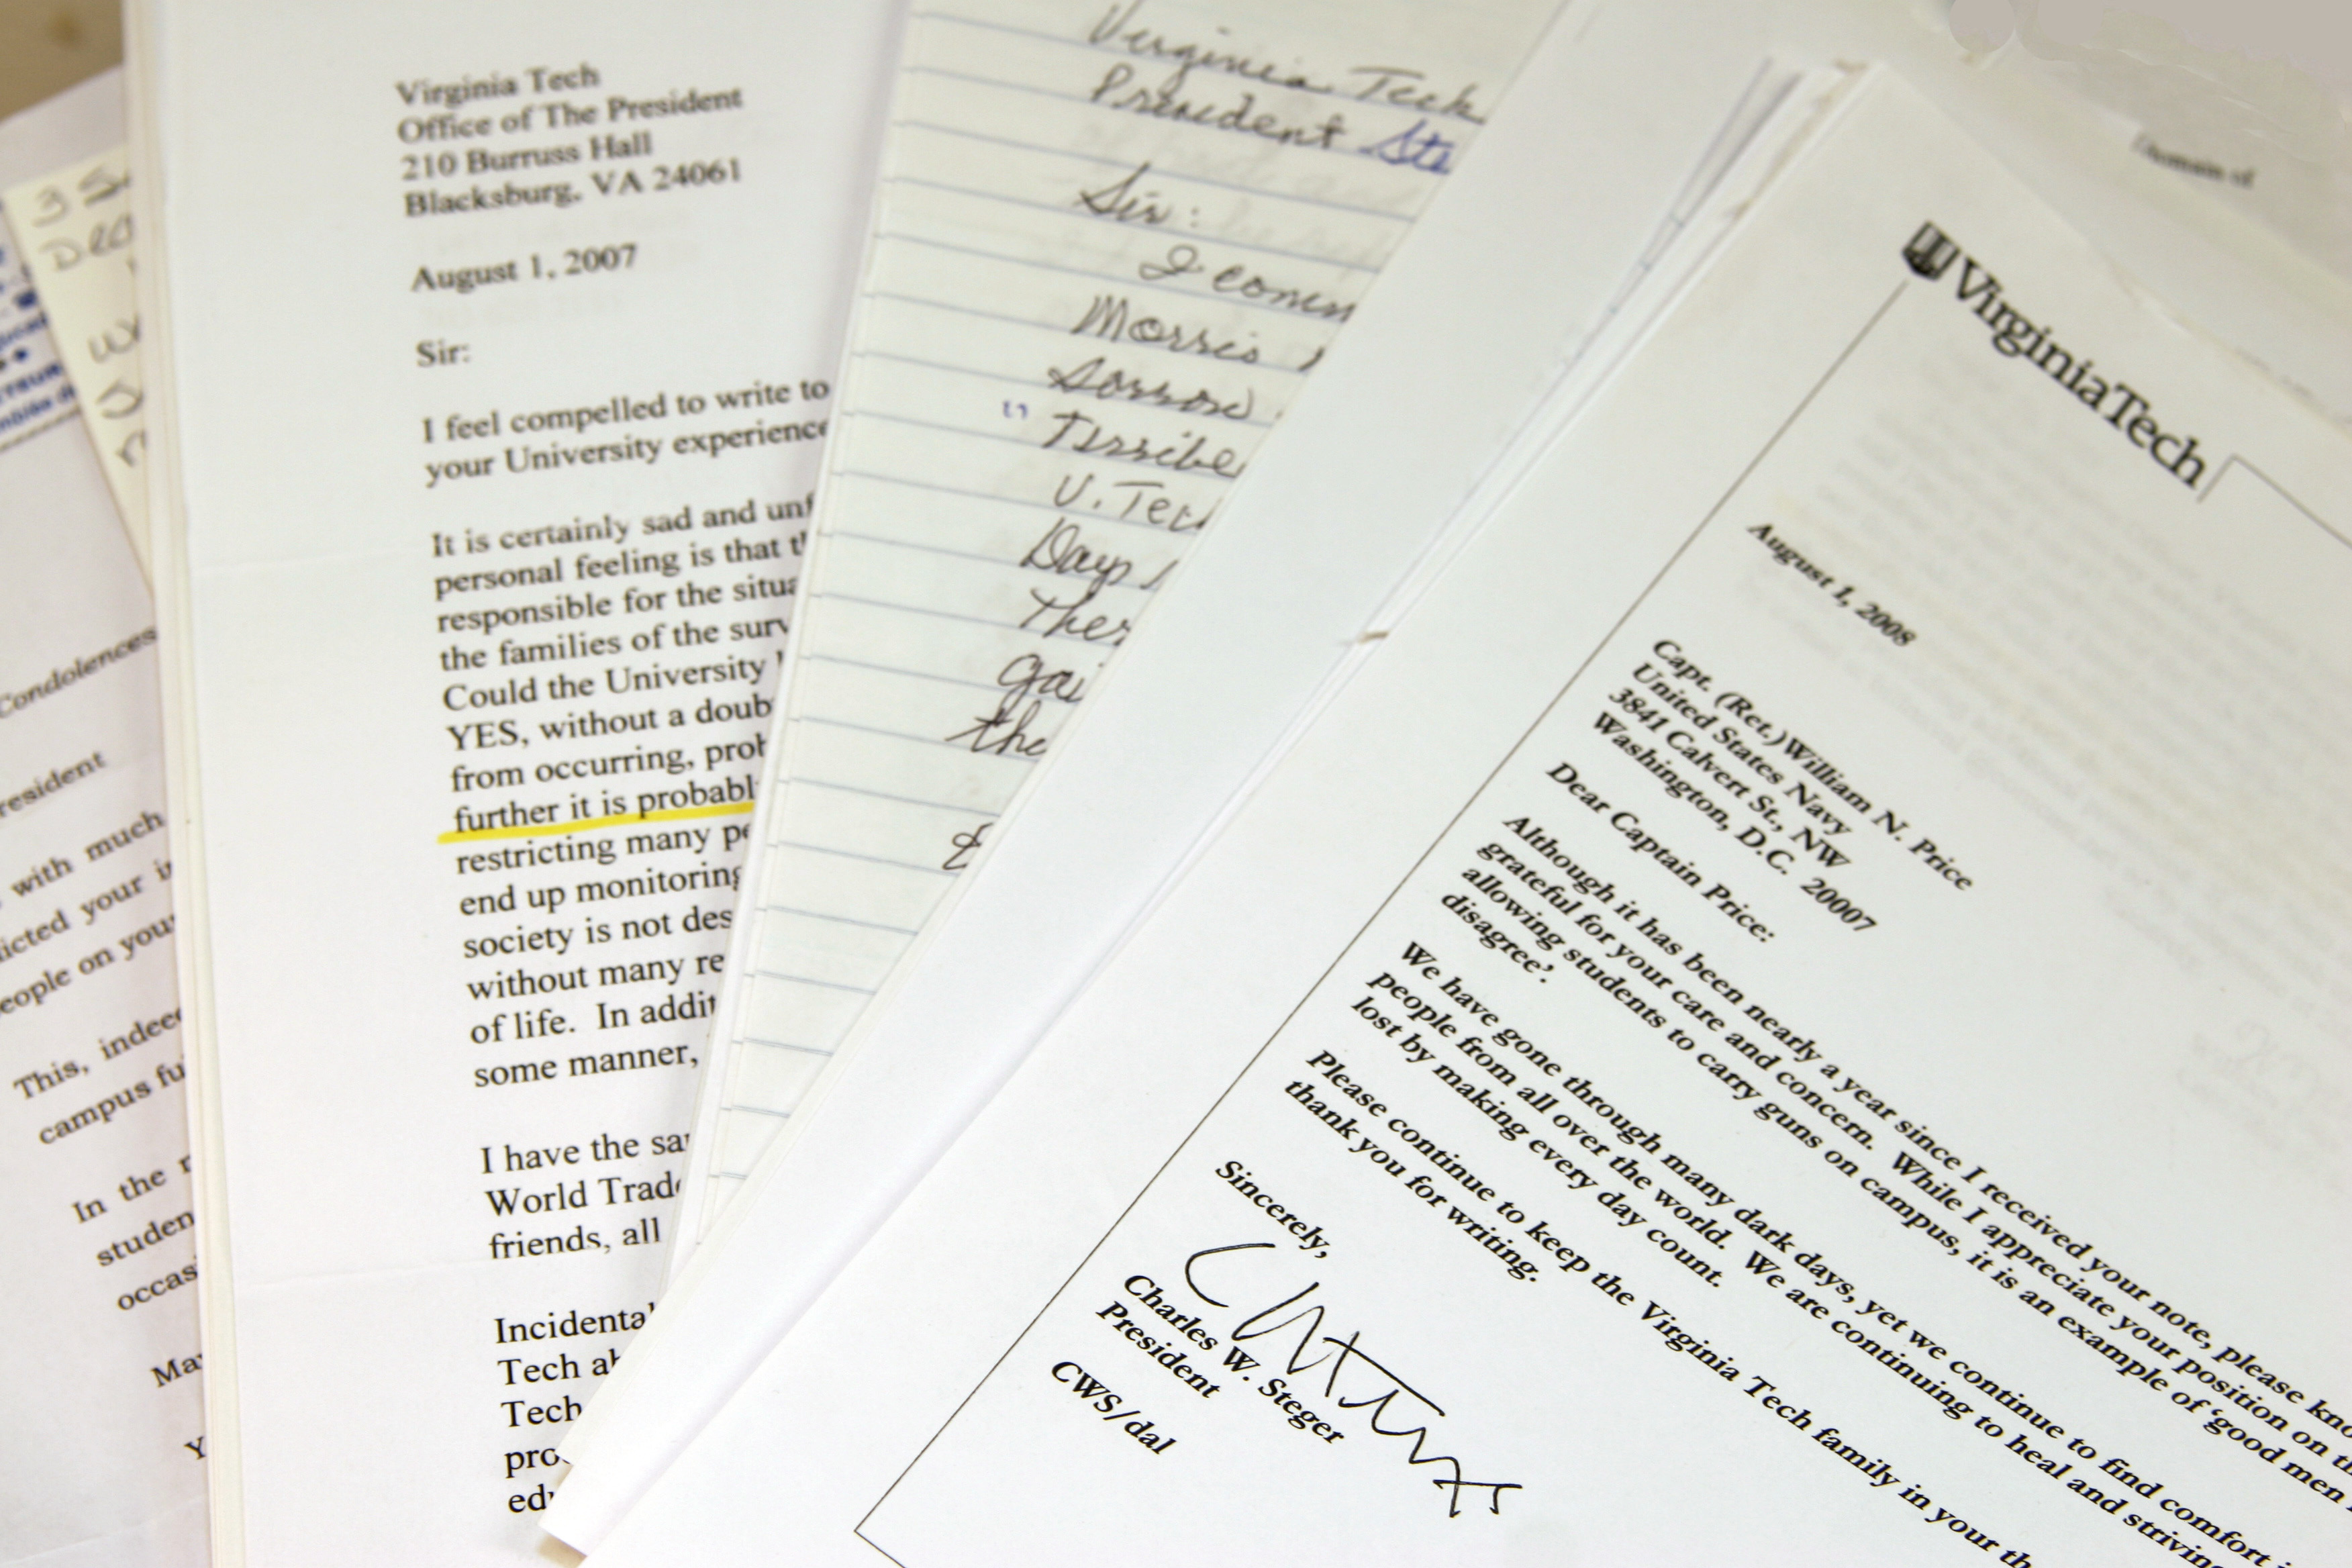 Condolences
resident
with much
icted your
eople on your
This, indeed
campus
In the
studen
occasi
May
Y
3
Virginia Tech
Office of The President
210 Burruss Hall
Blacksburg, VA 24061
August 1, 2007
Sir:
I feel compelled to write to
your University experience
It is certainly sad and unf
personal feeling is that th
responsible for the situa
the families of the surv
Could the University
YES, without a doub
from occurring, prob
further it is probabl
restricting many pe
end up monitoring
society is not des
without many re
of life. In addit
some manner,
I have the sa
World Trade
friends, all
Incidental
Tech ab
Tech
pro
edu
Virginia Tech
President Ste
Sir:
I comm
Morris
Sorrow
Terrible
V. Tech
Days
Ther
gai
the
&
VirginiaTech
August 1, 2008
Capt. (Ret.) William N. Price
United States Navy
3841 Calvert St., NW
Washington, D.C. 20007
Dear Captain Price:
Although it has been nearly a year since I received your note, please kno
grateful for your care and concern. While I appreciate your position on th
allowing students to carry guns on campus, it is an example of 'good men
disagree'.
We have gone through many dark days, yet we continue to find comfort
people from all over the world. We are continuing to heal and striving
lost by making every day count.
Please continue to keep the Virginia Tech family in your th
thank you for writing.
Sincerely,
Charles W. Steger
President
CWS/dal